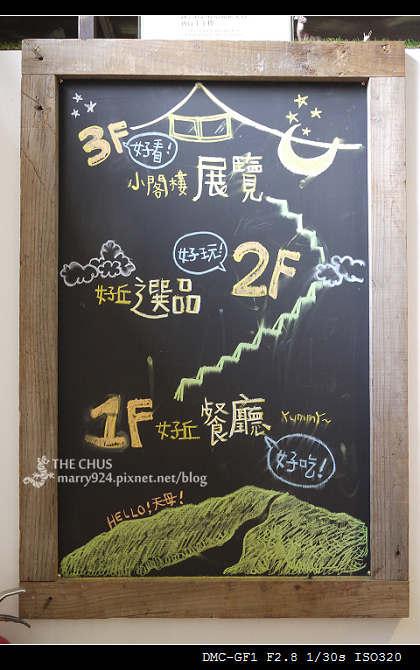 3F
好看!
小閣樓 展覽
好玩!
2F
好丘 選品
1F 好丘 餐廳 Yummy~
好吃!
THE CHUS
marry924.pixnet.net/blog
HELLO! 天母!
DMC-GF1 F2.8 1/30s ISO320